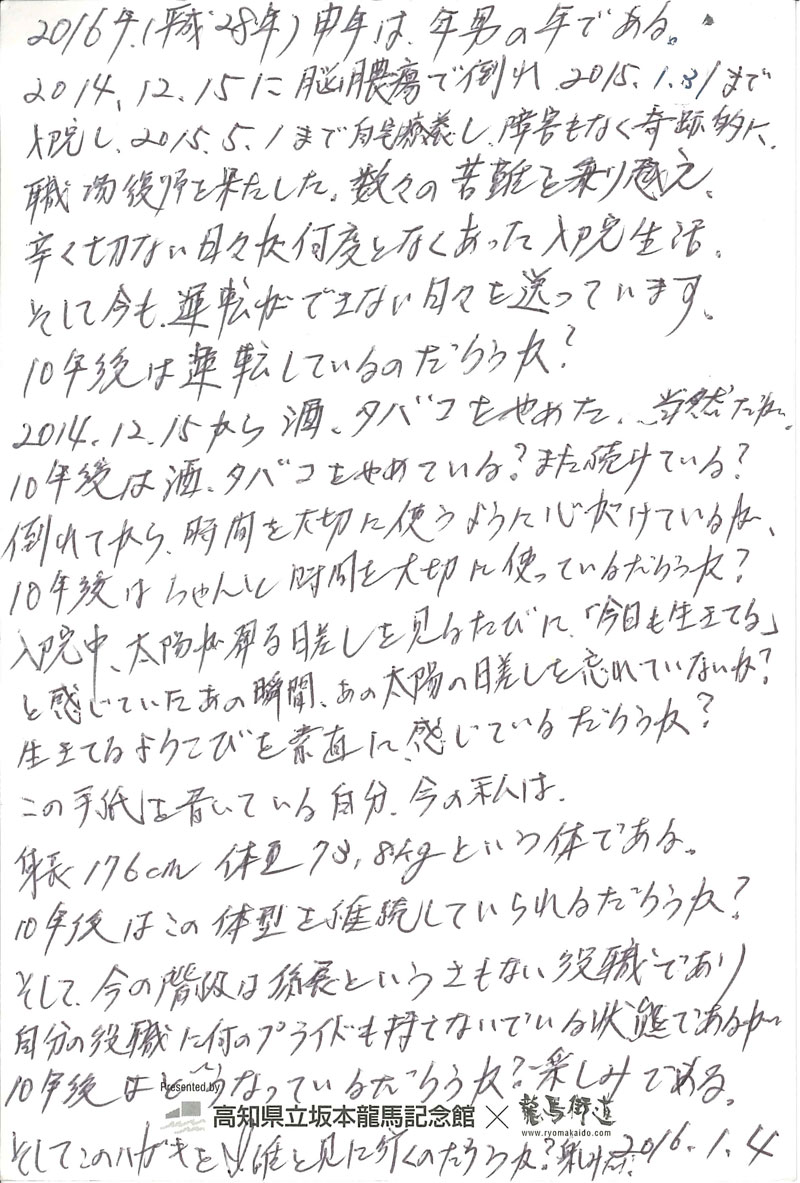 2016年(平成28年)申年は、年男の年である。
2014.12.15に脳膿瘍で倒れ 2015.1.31まで
入院し、2015.5.1まで自宅療養し、障害もなく奇跡的に、
職場復帰を果たした。数々の苦難を乗り越え、
辛く切ない日々が何度となくあった入院生活。
そして今も、運転ができない日々を送っています。
10年後は運転しているのだろうか?
2014.12.15から酒、タバコをやめた、当然だが、
10年後は酒、タバコをやめている?まだ続けている?
倒れてから、時間を大切に使うように心がけているが、
10年後はちゃんと時間を大切に使っているだろうか?
入院中、太陽が昇る日差しを見るたびに、「今日も生きてる」
と感じていたあの瞬間、あの太陽の日差しを忘れていないか?
生きてるよろこびを素直に感じているだろうか?
この手紙を書いている自分、今の私は、
身長176cm 体重78.8kgという体である。
10年後はこの体型を維持していられるだろうか?
そして、今の階級は係長というさもない役職であり
自分の役職に何のプライドも持てないでいる状態であるが
10年後はどうなっているだろうか?楽しみである。
Presented by
高知県立坂本龍馬記念館×龍馬街道
www.ryomakaido.com
そしてこのハガキを誰と見に行くのだろうか?
2016.1.4